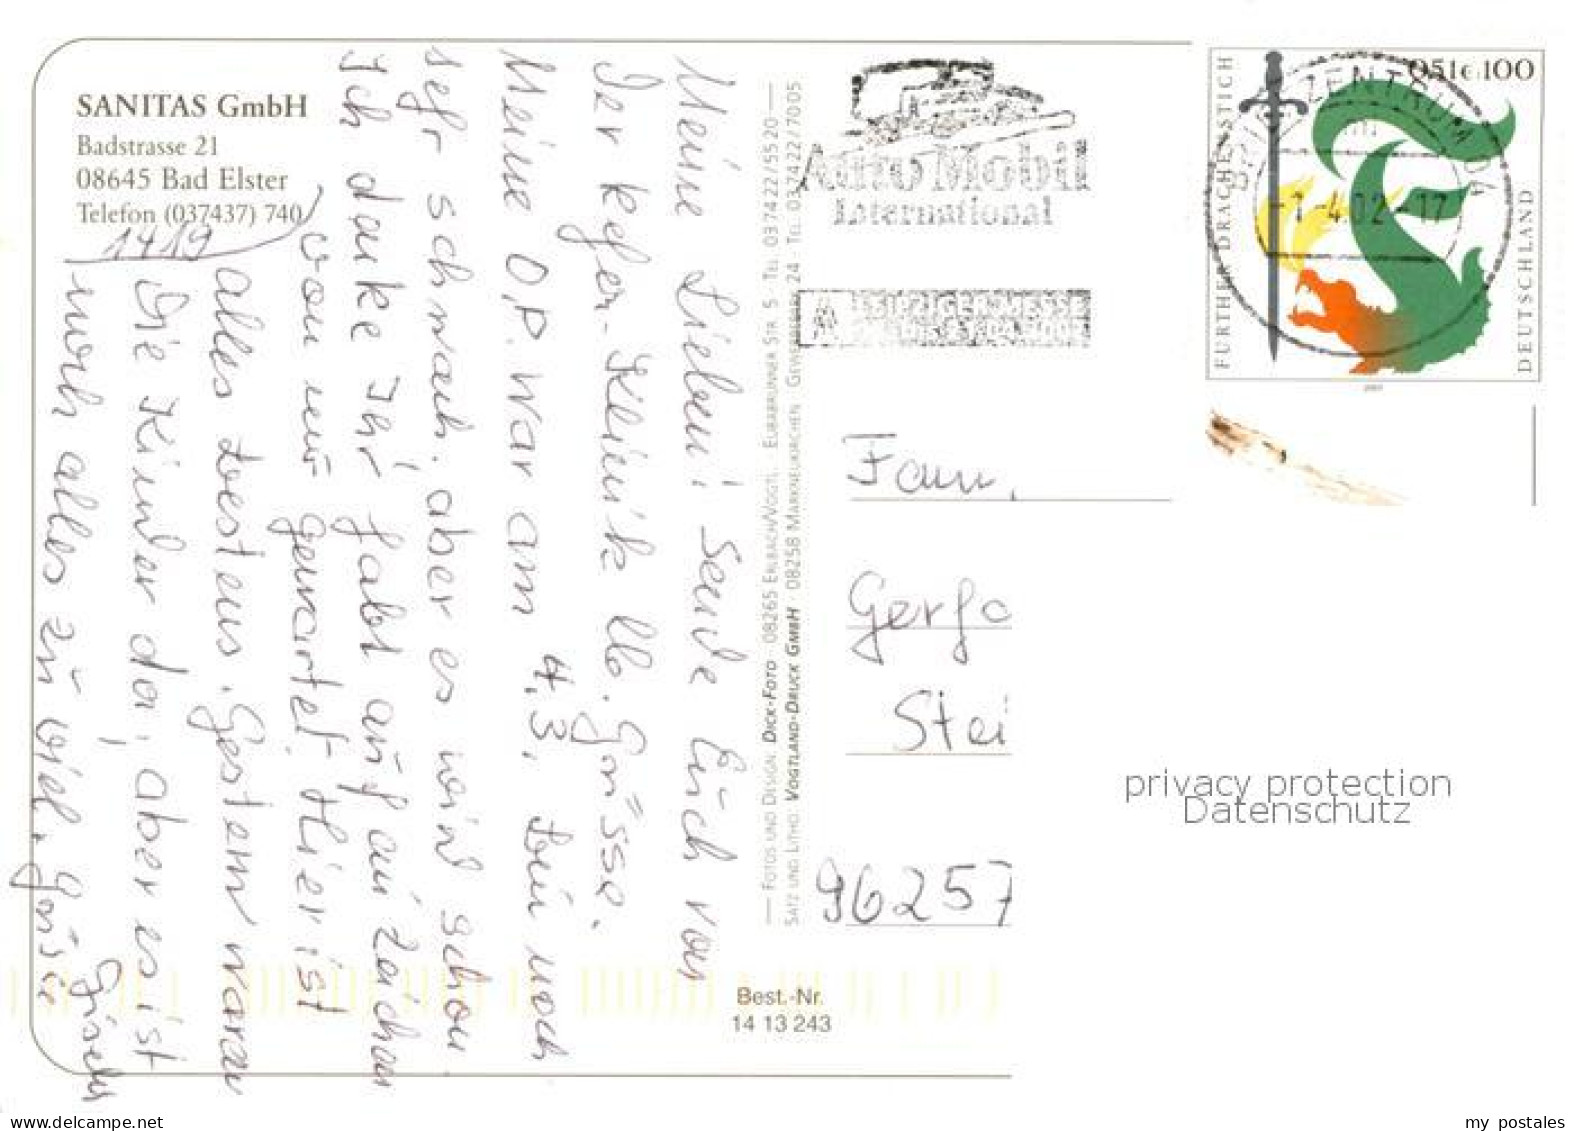 SANITAS GmbH
Badstrasse 21
08645 Bad Elster
Telefon (037437) 740
1419
Meine Lieben! Sende Euch von
der Klinik Grüsse.
Meine O.P. war am 4.3. bin noch
sehr schwach. aber es wird schon.
Ich danke Ihr habt auf ein Zeichen
von mir gewartet. Hier ist
alles bestens. Gestern waren
Die Kinder da, aber es ist
noch alles zu viel. Grüsse
Gisela
FOTOS UND DESIGN: DICK-FOTO 08265 ERLBACH/VOGTL. EUBABRUNNER STR. 5 TEL. 037422/5520
SATZ UND LITHO: VOGTLAND-DRUCK GMBH 08258 MARKNEUKIRCHEN GEWERBEPARK 24 · TEL. 037422/7005
Best.-Nr.
14 13 243
Auto Mobil
International
LEIPZIGER MESSE
BRIEFZENTRUM 04
-1.-4.02-17
0,51€ 100
FURTHER DRACHENSTICH
DEUTSCHLAND
2001
Fam.
Stei
96257
privacy protection
Datenschutz
my postales